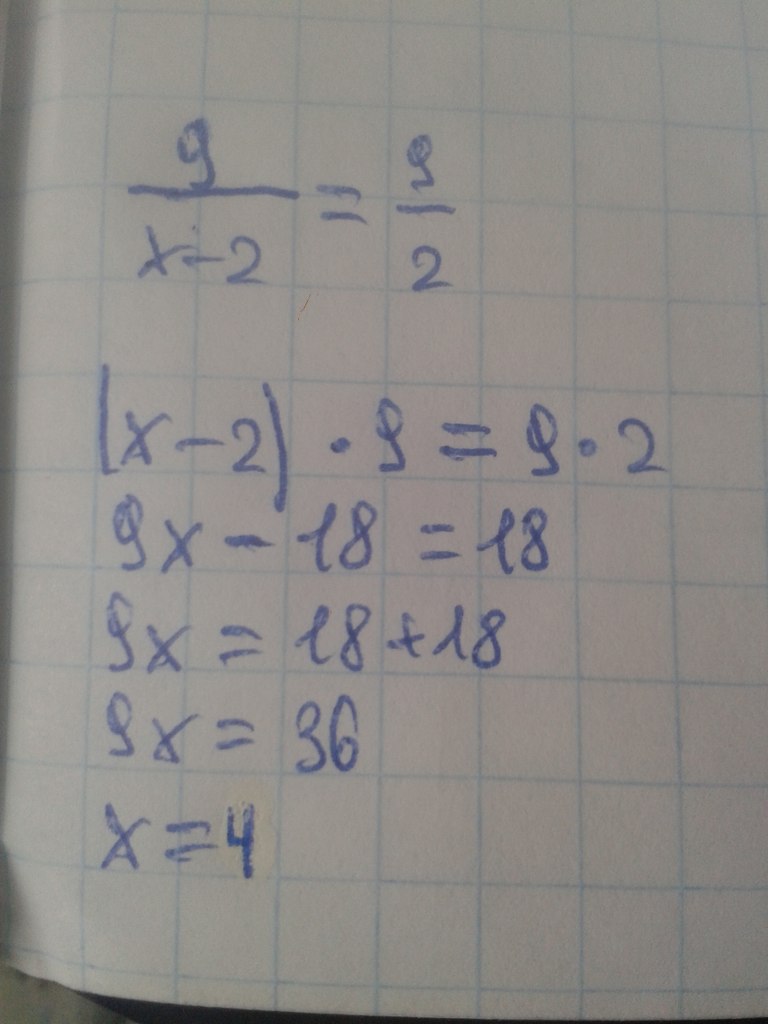 9/(x-2) = 9/2
(x-2) · 9 = 9 · 2
9x - 18 = 18
9x = 18 + 18
9x = 36
x = 4